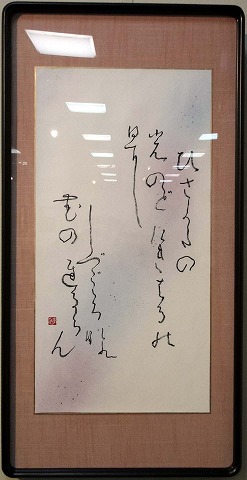 ひさかたの
光のどけきはるの
日に
しづごころなく
花のちるらん